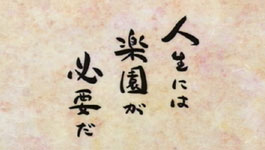 人生には
楽園が
必要だ